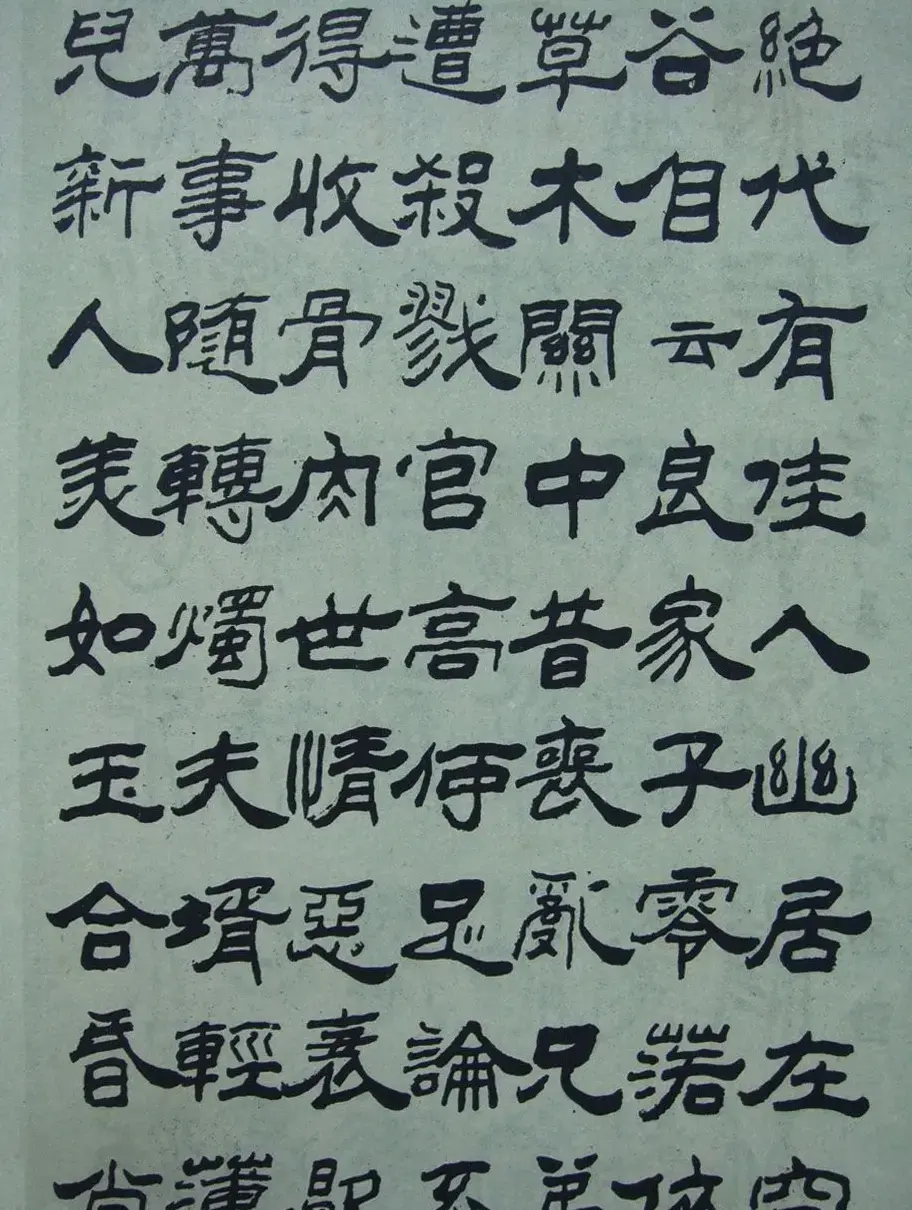 絶代有佳人幽居在空
谷自云良家子零落依
草木關中昔喪亂兄弟
遭殺戮官高何足論不
得收骨肉世情惡衰歇
萬事隨轉燭夫壻輕薄
兒新人美如玉合昏尚